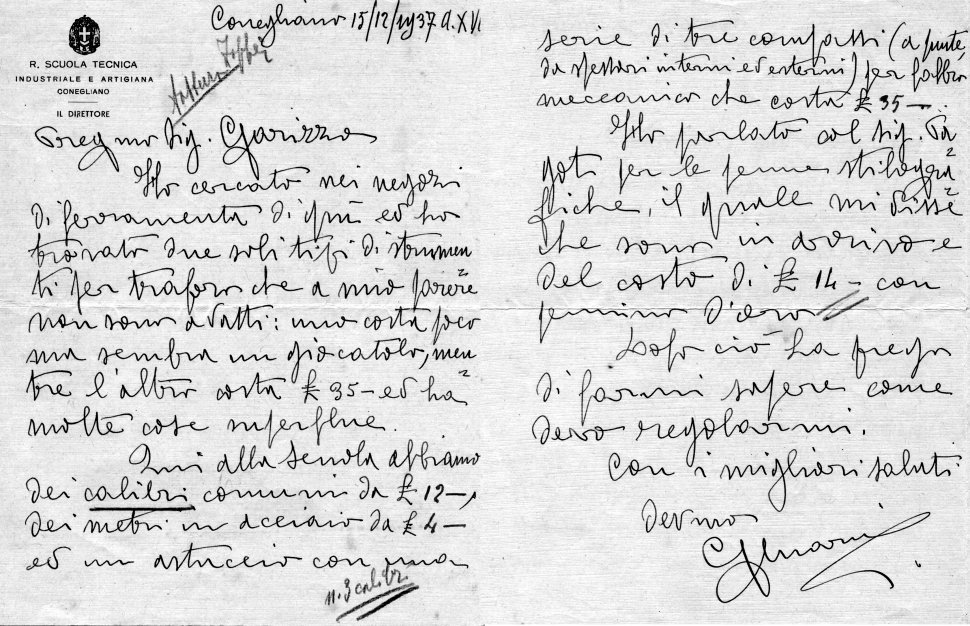 Conegliano 15/12/1937 A. XVI
R. SCUOLA TECNICA
INDUSTRIALE E ARTIGIANA
CONEGLIANO
IL DIRETTORE
Pregmo Sig. Garizzo
Ho cercato nei negozi
di ferramenta di quì ed ho
trovato due soli tipi di strumen
ti per traforo che a mio parere
non sono adatti: uno costa poco
ma sembra un giocatolo, men
tre l'altro costa £ 35 - ed ha
molte cose superflue.
Qui alla scuola abbiamo
dei calibri comuni da £ 12 -,
dei metri in acciaio da £ 4 -
ed un astuccio con una
n. 3 calibri
serie di tre compassi (a punte,
da spessori interni ed esterni) per fabbro
meccanico che costa £ 35 -.
Ho parlato col sig. Da
goti per le penne stilogra
fiche, il quale mi disse
che sono in arrivo e
del costo di £ 14 - con
pennino d'oro
Dopo ciò La prego
di farmi sapere come
devo regolarmi.
Con i migliori saluti
devmo